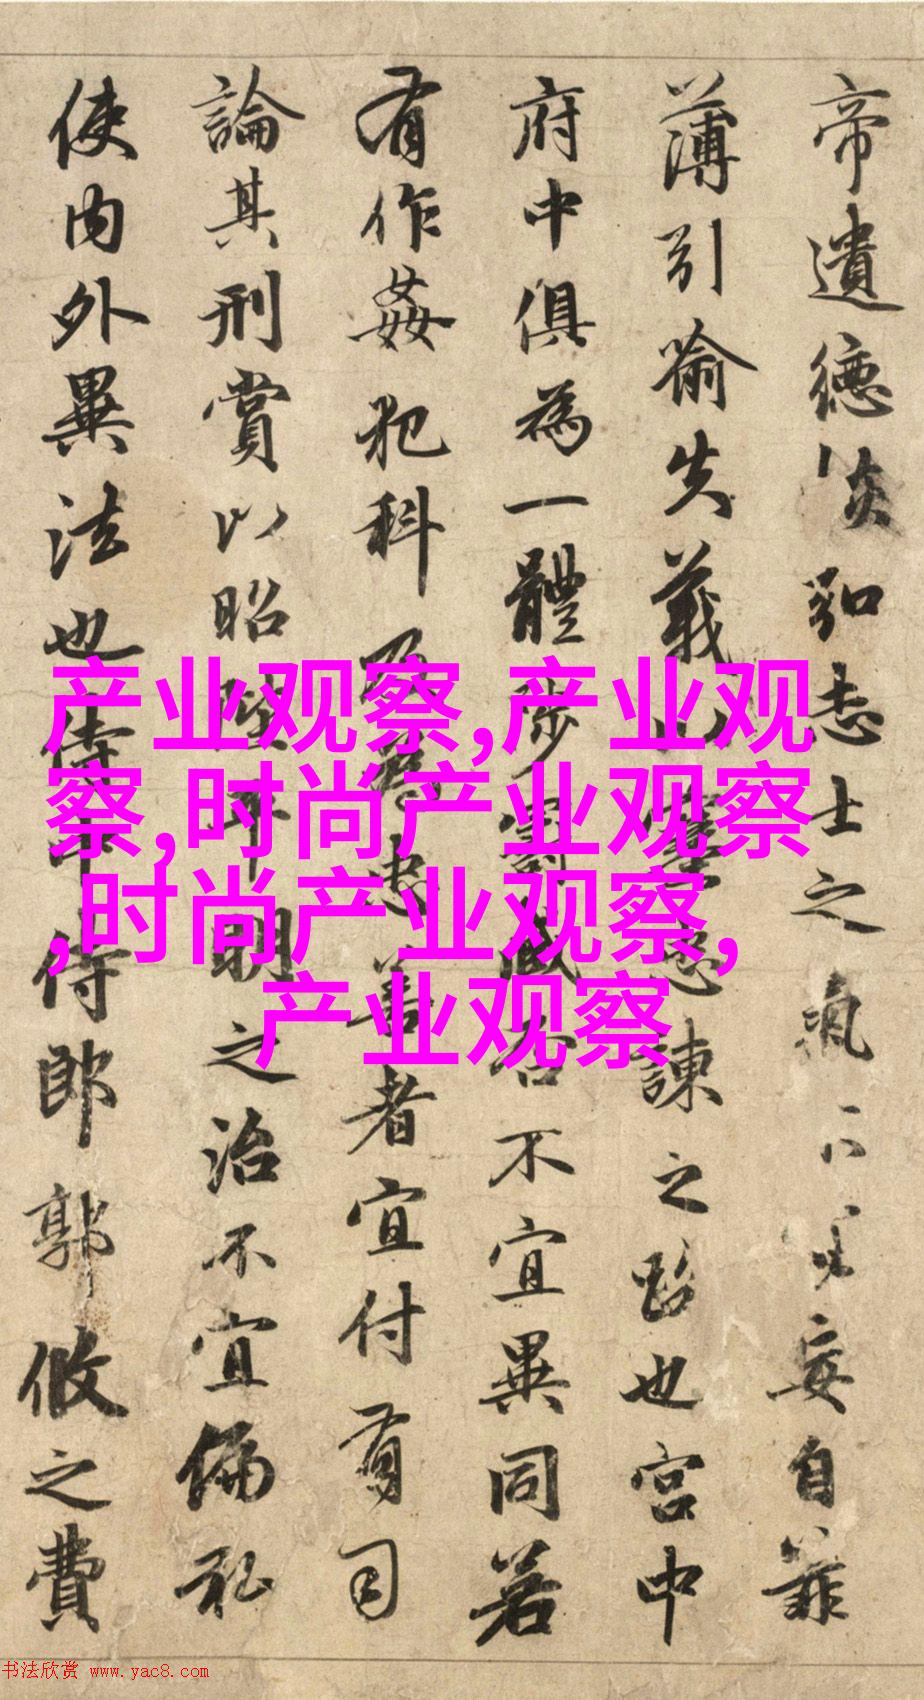 帝遺德恢弘志士之氣不妄自菲
薄引喻失義以塞忠諫之路也宮中
府中俱為一體陟罰臧否不宜異同若
有作姦犯科及為忠善者宜付有司
論其刑賞以昭陛平明之治不宜偏私
使內外異法也侍中侍郎郭攸之費
产业观察,产业观
察,时尚产业观察
,时尚产业观察,
产业观察
书法欣赏 www.yac8.com